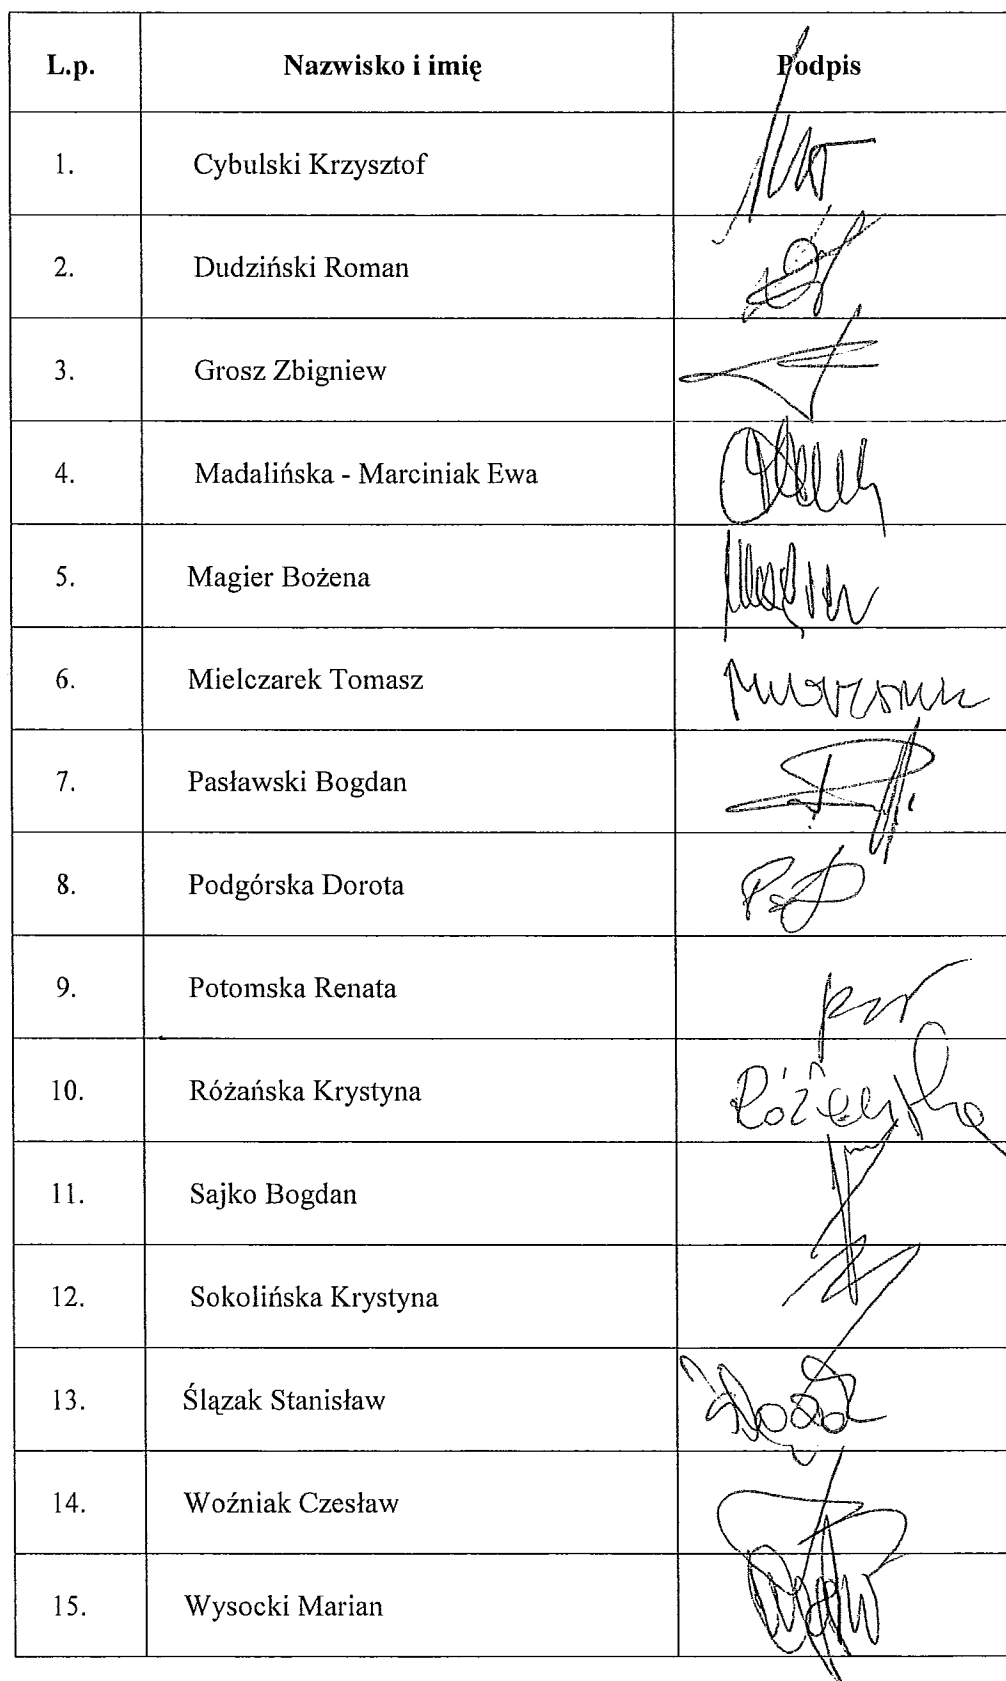 L.p. Nazwisko i imię Podpis
1. Cybulski Krzysztof
2. Dudziński Roman
3. Grosz Zbigniew
4. Madalińska - Marciniak Ewa
5. Magier Bożena
6. Mielczarek Tomasz
7. Pasławski Bogdan
8. Podgórska Dorota
9. Potomska Renata
10. Różańska Krystyna Różańska
11. Sajko Bogdan
12. Sokolińska Krystyna
13. Ślązak Stanisław
14. Woźniak Czesław
15. Wysocki Marian